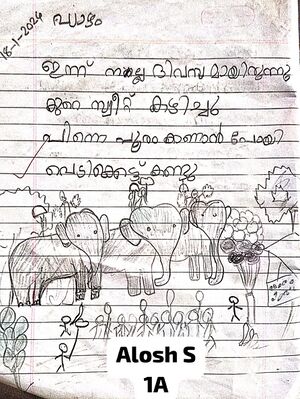 18-1-2024
വ്യാഴം
ഇന്ന് നല്ല ദിവസമായിരുന്നു
കുറെ സ്വീറ്റ് കഴിച്ചു
പിന്നെ പൂരം കണാൻ പോയി
വെടിക്കെട്ട് കണ്ടു
Alosh S
1A